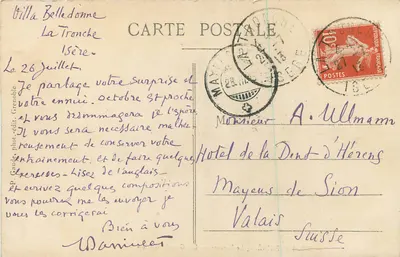 Villa Belledonne
La Tronche
Isère.
CARTE POSTALE
Le 26 Juillet.
Je partage votre surprise et
votre ennui. Octobre est proche
et vous dédommagera je l'espère
Il vous sera nécessaire malheu-
reusement de conserver votre
entraînement et de faire quelques
Lisez de l'anglais.
et écrivez quelques compositions
vous pourrez me les envoyer je
vous les corrigerai
Bien à vous
Monsieur A. Ullmann
Hotel de la Dent d'Hérens
Mayens de Sion
Valais
Suisse
10
POSTES